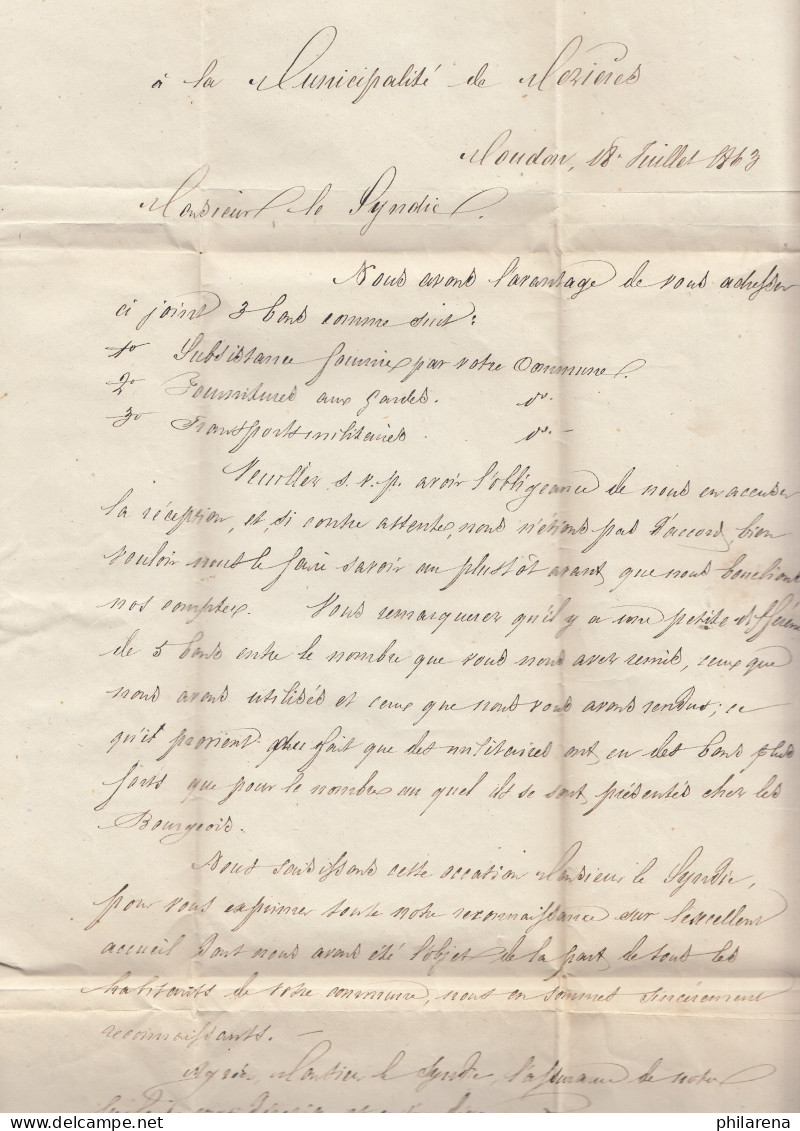 à la Municipalité de Mezières
Moudon, 18 Juillet 1863
Monsieur le Syndic.
Nous avons l'avantage de vous adresser
ci joint 3 bons comme suit :
1o Subsistance fournie par votre Commune.
2o Fournitures aux gardes. do.
3o Transports militaires. do. -
Veuillez s. v. p. avoir l'obligeance de nous en accuser
la réception, et, si contre attente, nous n'étions pas d'accord, bien
vouloir nous le faire savoir au plustôt avant que nous bouclions
nos comptes. Vous remarquerez qu'il y a une petite différence
de 5 bons entre le nombre que vous nous avez remis, ceux que
nous avons utilisés et ceux que nous vous avons rendus; ce
qui provient du fait que des militaires ont eu des bons plus
forts que pour le nombre au quel ils se sont présentés chez les
Bourgeois.
Nous saisissons cette occasion Monsieur le Syndic,
pour vous exprimer toute notre reconnaissance sur l'excellent
accueil dont nous avons été l'objet de la part de tous les
habitants de votre commune, nous en sommes sincérement
reconnaissants. -
Agréez, Monsieur le Syndic, l'assurance de notre
delcampe.net
philarena